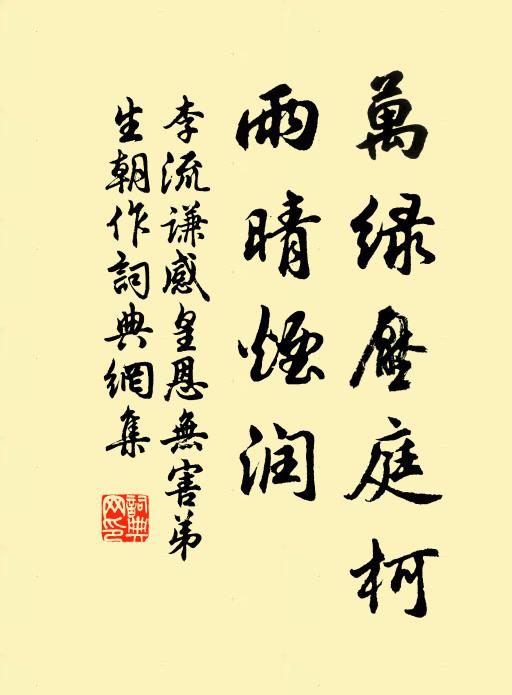 萬緑壓庭柯
雨晴煙润
李流谦感皇恩無害弟
生朝作詞典網集
詞典
网印